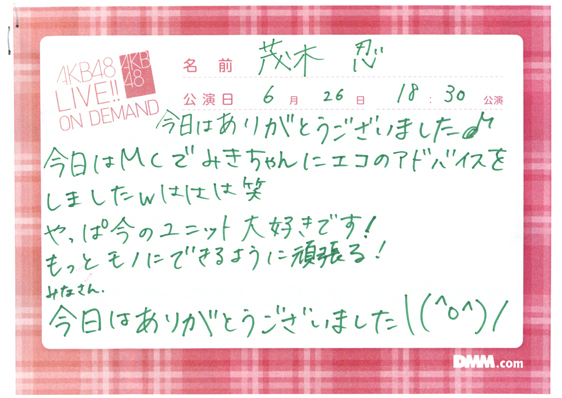 AKB48
LIVE!!
ON DEMAND
AKB
48
名前 茂木 忍
公演日 6月 26日 18:30 公演
今日はありがとうございました♪
今日はMCでみきちゃんにエコのアドバイスを
しましたwははは笑
やっぱ今のユニット大好きです!
もっとモノにできるように頑張る!
みなさん.
今日はありがとうございました\(^o^)/
DMM.com